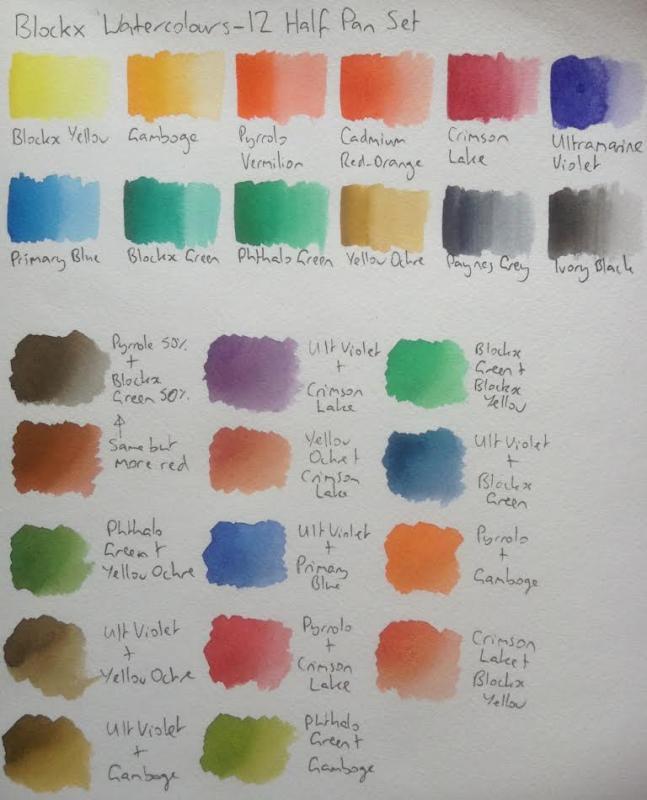 Blockx Watercolours-12 Half Pan Set
Blockx Yellow
Gamboge
Pyrrolo
Vermilion
Cadmium
Red-Orange
Crimson
Lake
Ultramarine
Violet
Primary Blue
Blockx Green
Phthalo Green
Yellow Ochre
Paynes Grey
Ivory Black
Pyrrole 50%
+
Blockx
Green 50%
Ult Violet
+
Crimson
Lake
Blockx
Green +
Blockx
Yellow
Same but
more red
Yellow
Ochre +
Crimson
Lake
Ult Violet
+
Blockx
Green
Phthalo
Green +
Yellow Ochre
Ult Violet
+
Primary
Blue
Pyrrolo
+
Gamboge
Ult Violet
+
Yellow Ochre
Pyrrolo
+
Crimson
Lake
Crimson
Lake +
Blockx
Yellow
Ult Violet
+
Gamboge
Phthalo
Green +
Gamboge